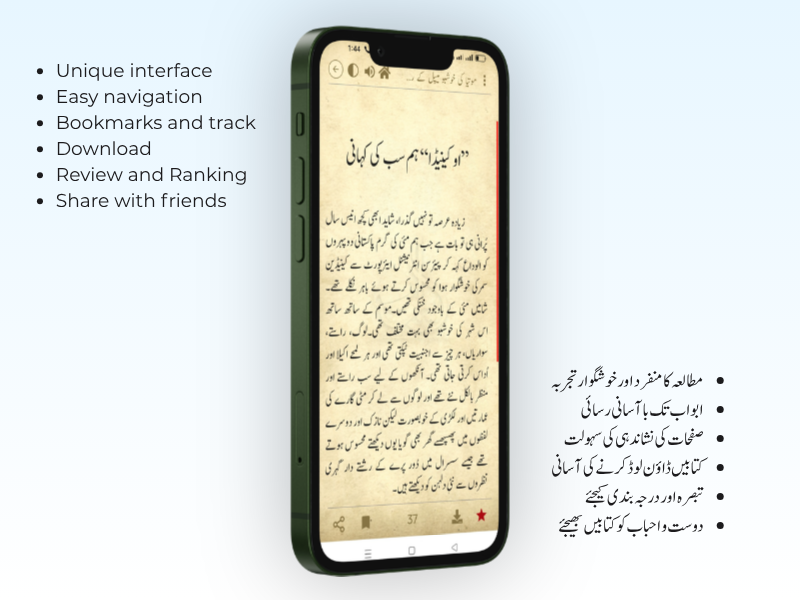 Unique interface
Easy navigation
Bookmarks and track
Download
Review and Ranking
Share with friends
1:44
موتیا کی خوشبو میپل کے ...
”او کینیڈا“ ہم سب کی کہانی
زیادہ عرصہ تو نہیں گذرا، شاید ابھی کچھ انیس سال
پُرانی ہی تو بات ہے جب ہم مئی کی گرم پاکستانی دوپہروں
کو الوداع کہہ کر پیئرسن انٹرنیشنل ایئرپورٹ سے کینیڈین
سمر کی خوشگوار ہوا کو محسوس کرتے ہوئے باہر نکلے تھے۔
شامیں مئی کے باوجود خنکی تھیں۔ موسم کے ساتھ ساتھ
اس شہر کی خوشبو بھی بہت مختلف تھی۔ لوگ، راستے،
سواریاں، ہر چیز سے اجنبیت ٹپکتی تھی اور ہر لمحے اکیلا اور
اُداس کرتی جاتی تھی۔ آنکھوں کے لیے سب راستے اور
منظر بالکل نئے تھے اور لوگوں سے لے کر مٹی گارے کی
عمارتیں اور لکڑی کے خوبصورت لیکن نازک اور دوسرے
لفظوں میں پھسپھسے گھر بھی گویا یوں دیکھتے محسوس ہوتے
تھے جیسے سسرال میں دُور پرے کے رشتے دار گہری
نظروں سے نئی دلہن کو دیکھتے ہیں۔
37
مطالعہ کا منفرد اور خوشگوار تجربہ
ابواب تک با آسانی رسائی
صفحات کی نشاندہی کی سہولت
کتابیں ڈاؤن لوڈ کرنے کی آسانی
تبصرہ اور درجہ بندی کیجئے
دوست و احباب کو کتابیں بھیجئے